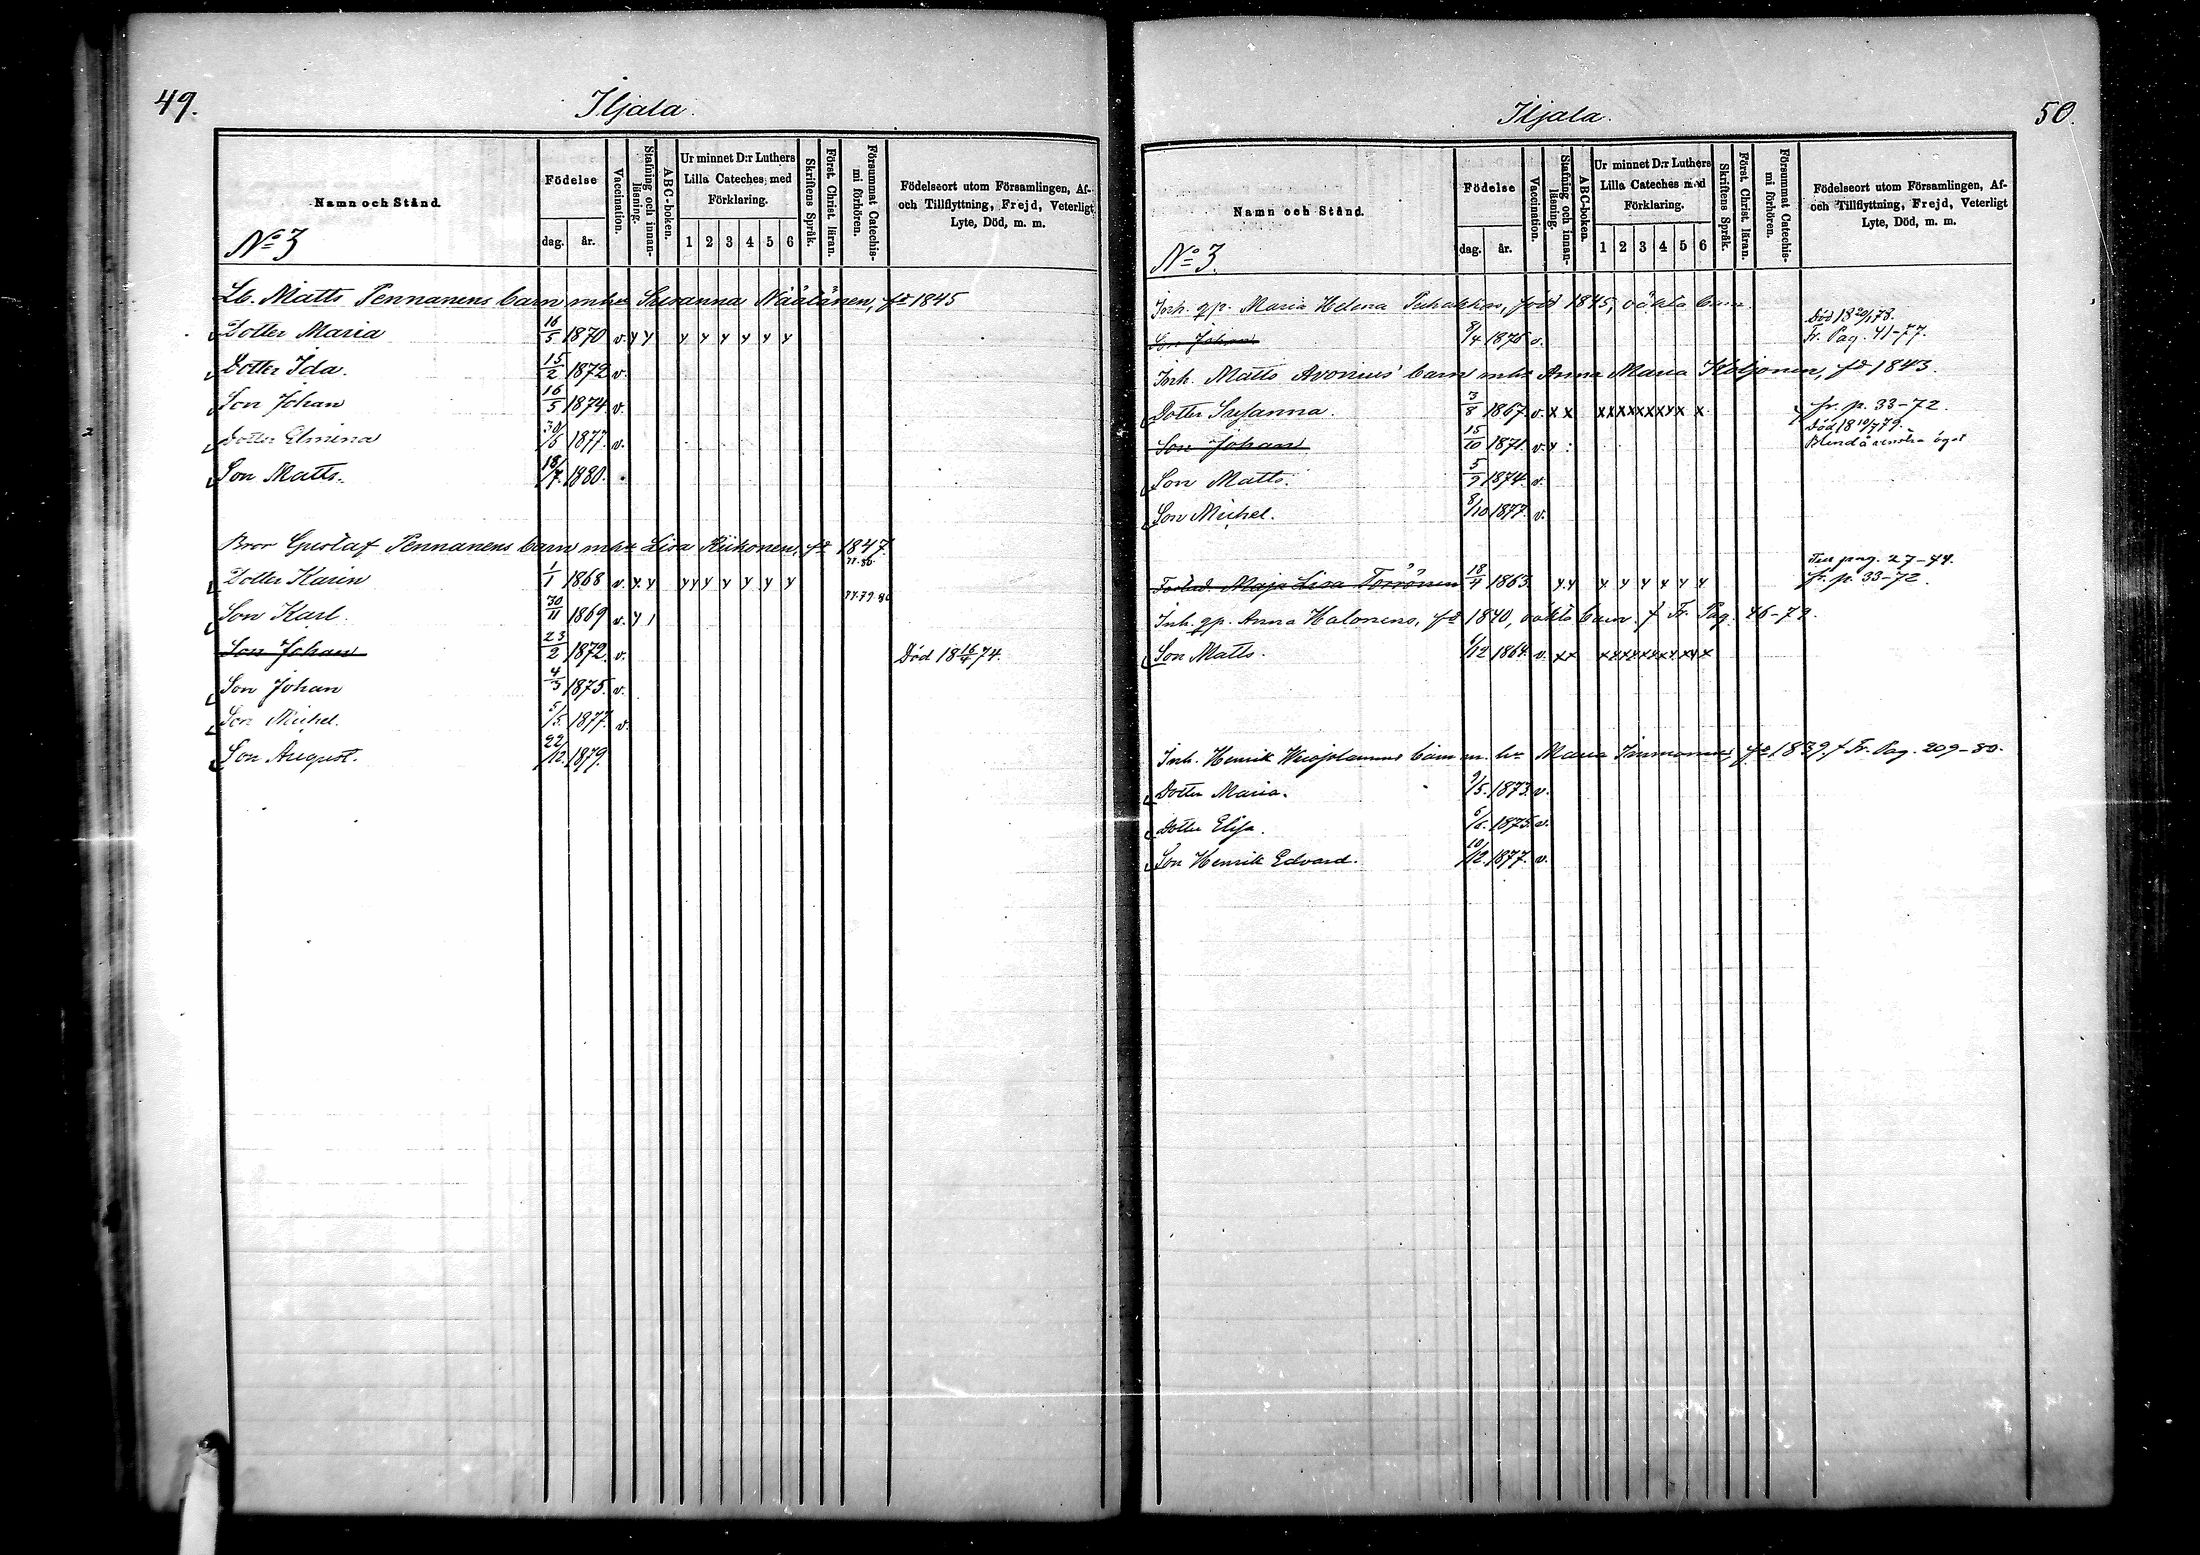 49.
Iljala.
Namn och Stånd.
Födelse
dag.
år.
Vaccination.
Stafning och innanläsning.
ABC-boken.
Ur minnet D:r Luthers
Lilla Cateches med
Förklaring.
1 2 3 4 5 6
Skriftens Språk.
Först. Christ. läran.
Försummat Catechismi förhören.
Födelseort utom Församlingen, Af-
och Tillflyttning, Frejd, Veterligt
Lyte, Död, m. m.
No 3
Lb. Matts Pennanens barn mhu Susanna Näätänen, fd 1845
Dotter Maria 16/5 1870 v. y y y y y y y y
Dotter Ida. 15/2 1872 v.
Son Johan 16/5 1874 v.
Dotter Elmina 30/6 1877. v.
Son Matts. 18/7 1880.
Bror Gustaf Pennanens barn mhu Lisa Riikonen, fd 1847.
77. 80.
Dotter Karin 1/1 1868 v. y. y y y y y y y y
77. 79. 80
Son Karl. 30/11 1869 v. y
Son Johan 23/2 1872. v. Död 18 16/4 74.
Son Johan 4/3 1875. v.
Son Michel. 5/5. 1877. v.
Son August. 22/12. 1879.
50.
Iljala.
Namn och Stånd.
Födelse
dag.
år.
Vaccination.
Stafning och innanläsning.
ABC-boken.
Ur minnet D:r Luthers
Lilla Cateches med
Förklaring.
1 2 3 4 5 6
Skriftens Språk.
Först. Christ. läran.
Försummat Catechismi förhören.
Födelseort utom Församlingen, Af-
och Tillflyttning, Frejd, Veterligt
Lyte, Död, m. m.
No 3.
Inh. qp. Maria Helena Puhakkas, född 1845, oäkta barn
Död 18 78.
Son Johan 8/4 1876 v. Fr. Pag. 41-77.
Inh. Matts Avonius' barn mhu Anna Maria fd 1843.
Dotter Susanna. 3/8 1867 v. x x x x x x x x x y x x. fr. p. 33-72.
Död 18 79.
Son Johan 15/10 1871. v. y Blind å venstra ögat
Son Matts. 5/9 1874. v.
Son Michel. 8/10 1877. v.
Till pag. 27-74.
Maja Lisa Torrönen 18/4 1863. y. y y y y y y y fr. p. 33-72.
Inh. qp. Anna Halonens, fd 1840, oäkta barn. f Fr. Pag. 46-79.
Son Matts. 6/12 1864. v. x x x x x x x x y x x x
Inh. Henrik barn m. hu Maria fd 1839, f Fr. Pag. 209-80.
Dotter Maria. 9/5. 1873. v.
Dotter Elisa. 6/6. 1875. v.
Son Henrik Edvard. 10/12. 1877. v.